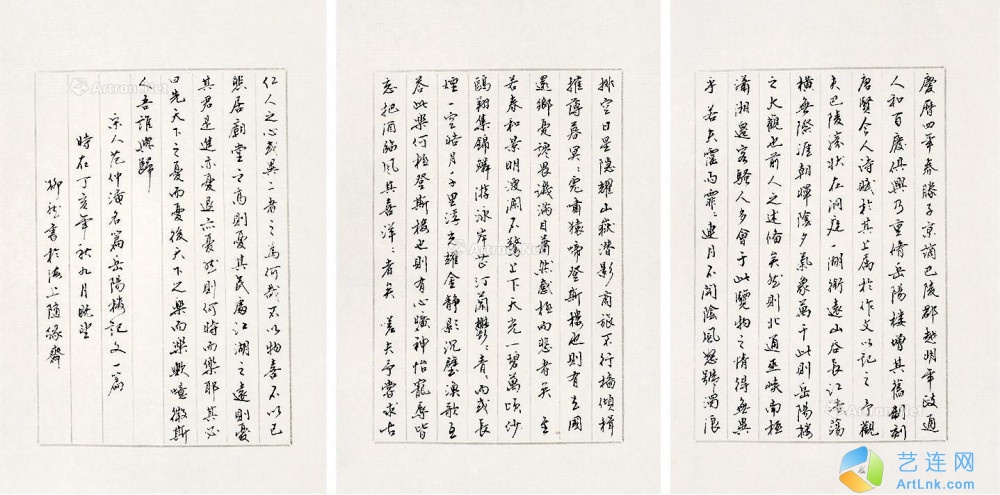 慶曆四年春滕子京謫巴陵郡越明年政通
人和百廢俱興乃重脩岳陽樓增其舊制刻
唐賢今人詩賦於其上屬於作文以記之予觀
夫巴陵勝狀在洞庭一湖銜遠山吞長江浩蕩
橫無際涯朝暉陰夕氣象萬千此則岳陽樓
之大觀也前人之述備矣然則北通巫峽南極
瀟湘遷客騷人多會于此覽物之情得無異
乎 若夫霪雨霏〻連月不開陰風怒號濁浪
排空日星隱耀山嶽潛影商旅不行檣傾楫
摧薄暮冥〻虎嘯猿啼登斯樓也則有去國
還鄉憂讒畏譏滿目蕭然感極而悲者矣 至
若春和景明波瀾不驚上下天光一碧萬頃沙
鷗翔集錦鱗游泳岸芷汀蘭鬱〻青〻而或長
煙一空皓月千里浮光耀金靜影沉璧漁歌互
答此樂何極登斯樓也則有心曠神怡寵辱皆
忘把酒臨風其喜洋〻者矣 嗟夫予嘗求古
仁人之心或異二者之為何哉不以物喜不以己
悲居廟堂之高則憂其民處江湖之遠則憂
其君是進亦憂退亦憂然則何時而樂耶其必
曰先天下之憂而憂後天下之樂而樂歟噫微斯
人吾誰與歸
宋人范仲淹名篇岳陽樓記文一篇
時在丁亥年秋九月既望
柳 書於海上隨緣齋
Artron.Net
Artron.Net
Artron.Net
艺连网
ArtLnk.com